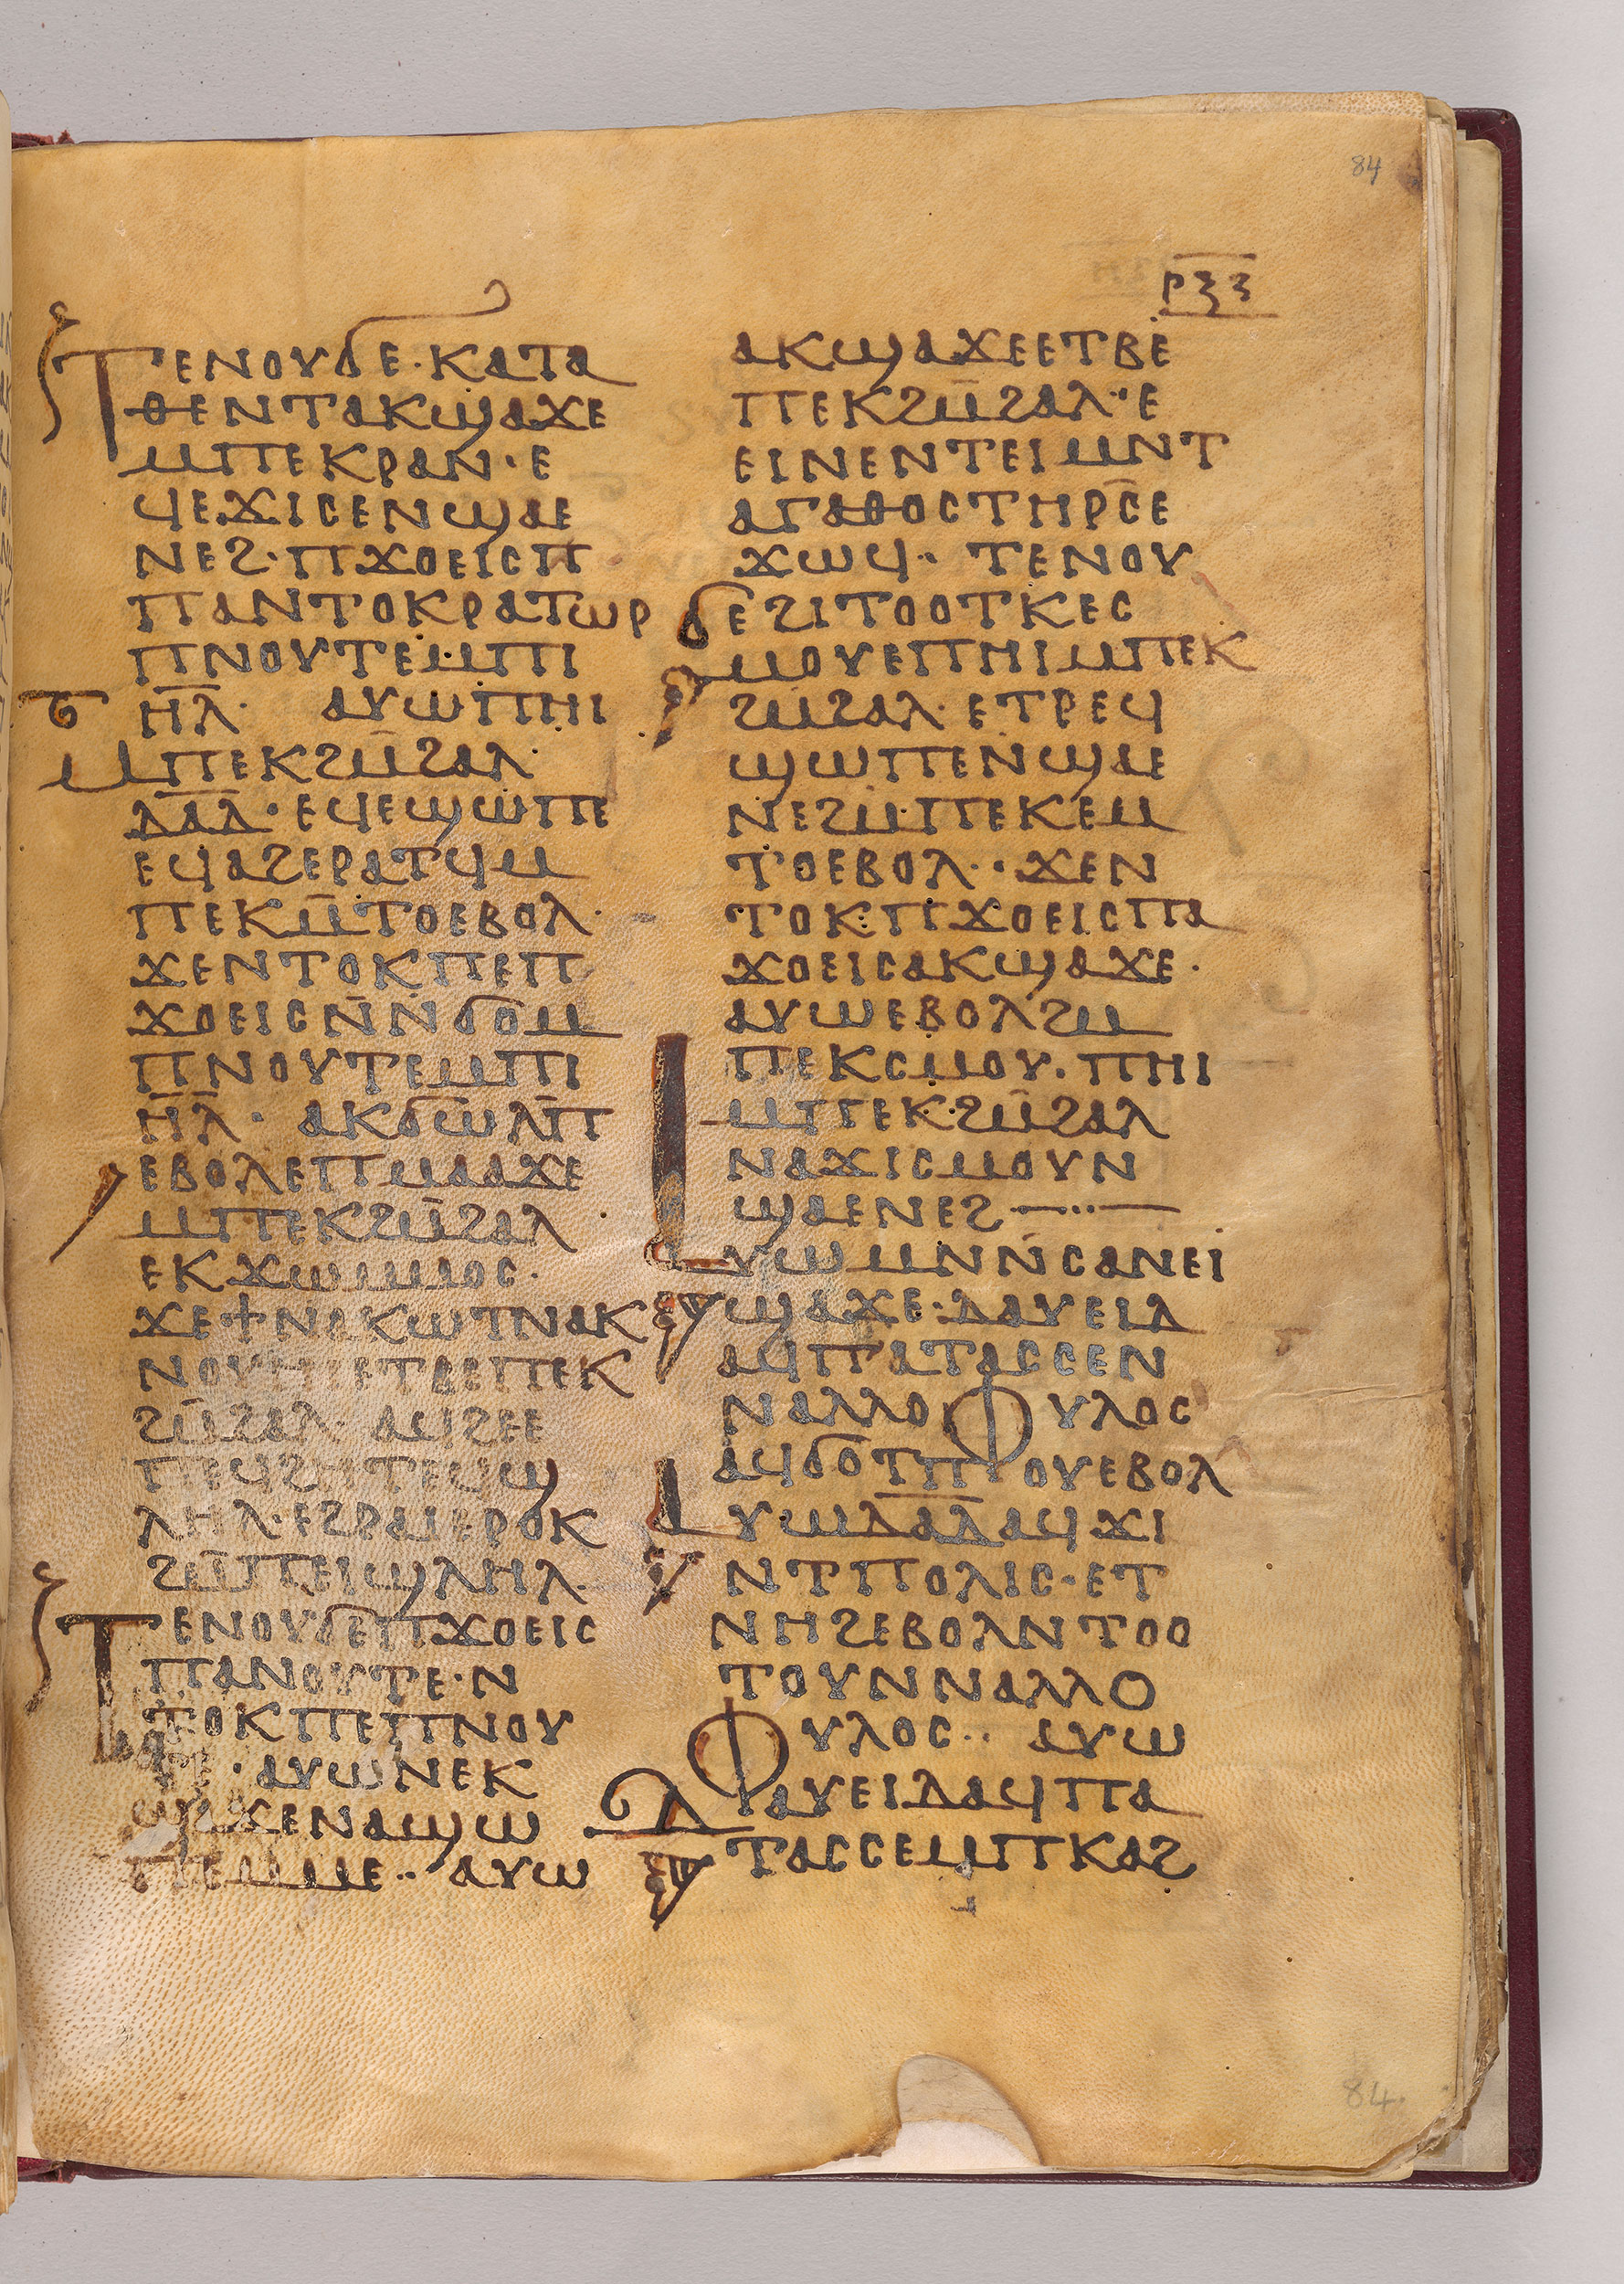 84
ⲣⲝⲍ
ⲧⲉⲛⲟⲩϭⲉ·ⲕⲁⲧⲁ
ⲑⲉⲛⲧⲁⲕϣⲁϫⲉ
ⲙⲡⲉⲕⲣⲁⲛ·ⲉ
ϥⲉϫⲓⲥⲉⲛϣⲁⲉ
ⲛⲉϩ·ⲡϫⲟⲉⲓⲥⲡ
ⲡⲁⲛⲧⲟⲕⲣⲁⲧⲱⲣ
ⲡⲛⲟⲩⲧⲉⲙⲡⲓ
ⲏ̅ⲗ̅· ⲁⲩⲱⲡⲏⲓ
ⲙⲡⲉⲕϩⲙ̅ϩⲁⲗ·
ⲇ̅ⲁ̅ⲇ̅·ⲉϥⲉϣⲱⲡⲉ
ⲉϥⲁϩⲉⲣⲁⲧϥⲙ
ⲡⲉⲕⲙ̅ⲧⲟⲉⲃⲟⲗ·
ϫⲉⲛⲧⲟⲕⲡⲉⲡ
ϫⲟⲉⲓⲥⲛ̅ⲛ̅ϭⲟⲙ
ⲡⲛⲟⲩⲧⲉⲙⲡⲓ
ⲏ̅ⲗ̅· ⲁⲕϭⲱⲗⲡ̅
ⲉⲃⲟⲗⲉⲡⲙⲁⲁϫⲉ
ⲙⲡⲉⲕϩⲙ̅ϩⲁⲗ
ⲉⲕϫⲱⲙⲙⲟⲥ·
ϫⲉϯⲛⲁⲕⲱⲧⲛⲁⲕ
ⲛⲟⲩⲏⲓⲉⲧⲃⲉⲡⲉⲕ
ϩⲙ̅ϩⲁⲗ· ⲁϥϩⲉⲉ
ⲡⲉϥϩⲏⲧⲉϥϣ
ⲗⲏⲗ·ⲉϩⲣⲁⲓⲉⲣⲟⲕ
ϩⲙ̅ⲡⲉⲓϣⲗⲏⲗ·
ⲧⲉⲛⲟⲩϭⲉⲡϫⲟⲉⲓⲥ
ⲡⲁⲛⲟⲩⲧⲉ·ⲛ
ⲧⲟⲕⲡⲉⲡⲛⲟⲩ
ⲧⲉ·ⲁⲩⲱⲛⲉⲕ
ϣⲁϫⲉⲛⲁϣⲱ
ⲡⲉⲙⲙⲉ·· ⲁⲩⲱ
ⲁⲕϣⲁϫⲉⲉⲧⲃⲉ
ⲡⲉⲕϩⲙ̅ϩⲁⲗ·ⲉ
ⲉⲓⲛⲉⲛⲧⲉⲓⲙⲛⲧ
ⲁⲅⲁⲑⲟⲥⲧⲏⲣⲥ̅ⲉ
ϫⲱϥ·· ⲧⲉⲛⲟⲩ
ϭⲉϩⲓⲧⲟⲟⲧⲕⲉⲥ
ⲙⲟⲩⲉⲡⲏⲓⲙⲡⲉⲕ
ϩⲙϩⲁⲗ·ⲉⲧⲣⲉϥ
ϣⲱⲡⲉⲛϣⲁⲉ
ⲛⲉϩⲙ·ⲡⲉⲕⲉⲙ
ⲧⲟⲉⲃⲟⲗ··ϫⲉⲛ
ⲧⲟⲕ·ⲡϫⲟⲉⲓⲥⲡⲁ
ϫⲟⲉⲓⲥⲁⲕϣⲁϫⲉ·
ⲁⲩⲱⲉⲃⲟⲗϩⲙ
ⲡⲉⲕⲥⲙⲟⲩ·ⲡⲏⲓ
ⲙⲡⲉⲕ·ϩⲙ̅ϩⲁⲗ
ⲛⲁϫⲓⲥⲙⲟⲩⲛ
ϣⲁⲉⲛⲉϩ—··—
ⲁⲩⲱⲙⲛⲛ̅ⲥⲁⲛⲉⲓ
ϣⲁϫⲉ·ⲇⲁⲩⲉⲓⲇ
ⲁϥⲡⲁⲧⲁⲥⲥⲉⲛ
ⲛⲁⲗⲗⲟⲫⲩⲗⲟⲥ
ⲁϥϭⲟⲧⲡⲟⲩⲉⲃⲟⲗ
ⲁⲩⲱⲇ̅ⲁ̅ⲇ̅ⲁϥϫⲓ
ⲛⲧⲡⲟⲗⲓⲥ·ⲉⲧ
ⲛⲏϩⲉⲃⲟⲗⲛⲧⲟⲟ
ⲧⲟⲩⲛⲛⲁⲗⲗⲟ
ⲫⲩⲗⲟⲥ·· ⲁⲩⲱ
ⲇⲁⲩⲉⲓⲇⲁϥⲡⲁ
ⲧⲁⲥⲥⲉⲙⲡⲕⲁϩ
84.